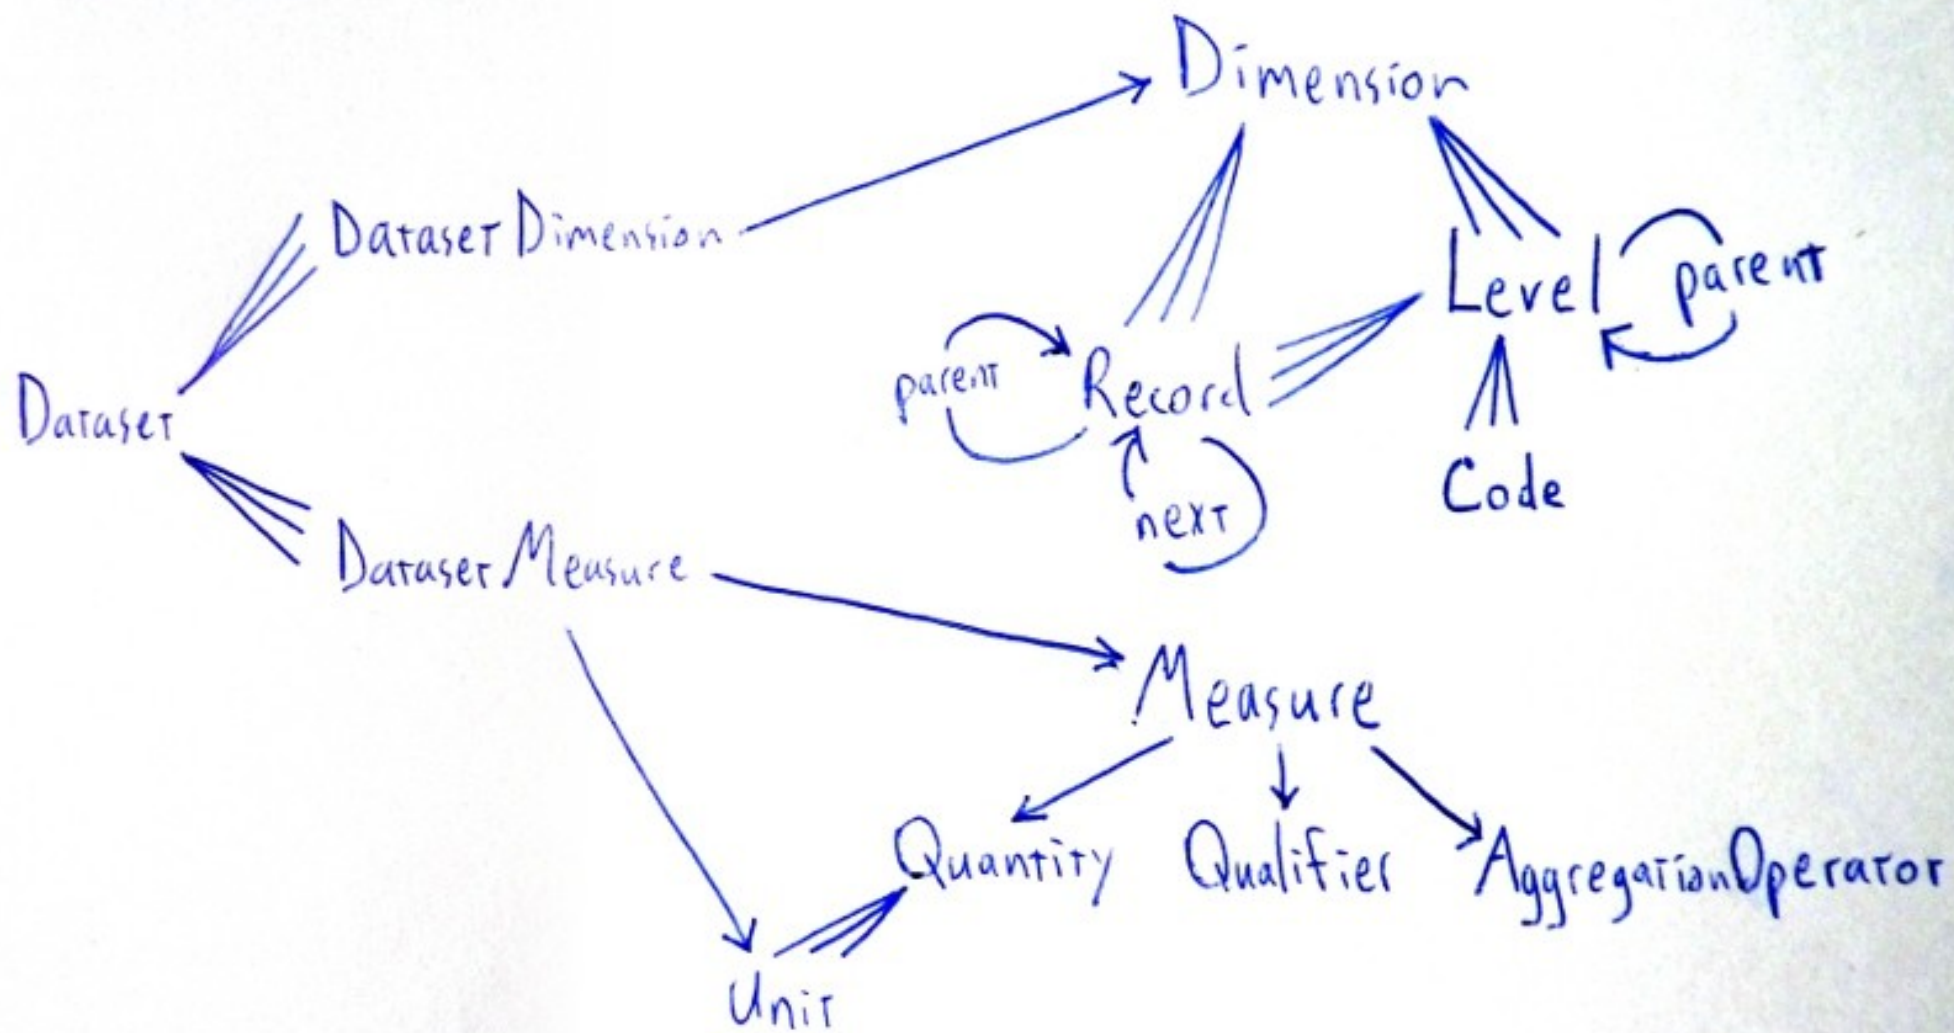 Dimension
DatasetDimension
Level
parent
parent
Record
Dataset
Code
next
DatasetMeasure
Measure
Quantity
Qualifier
AggregationOperator
Unit